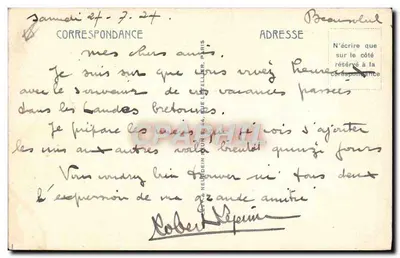 Samedi 27-7-24.
CORRESPONDANCE
ADRESSE
N'écrire que
sur le côté
réservé à la
correspondance
mes chers amis.
Je suis sûr que vous vivez heureux
avec le souvenir de vos vacances passées
dans les Landes bretonnes.
Je prépare les que je vois s'ajouter
les uns aux autres voilà bientôt quinze jours
Vous voudrez bien trouver ici tous deux
l'expression de ma grande amitié
Robert Lépine